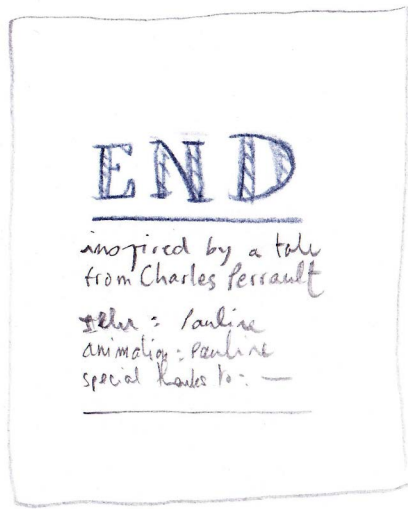 END
inspired by a tale
from Charles Perrault
: Pauline
animation : Pauline
special thanks to : —